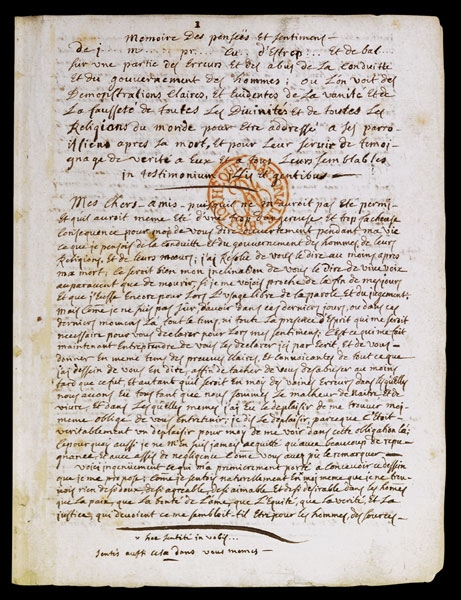 1
Memoire Des pensées Et sentimens
de j... m... pr... cu... d'Estrep... Et de bal...
sur une partie des Erreurs Et des abus de La Conduitte
Et du gouvernement des hommes; ou Lon voit des
Demonstrations Claires, et Evidentes de La vanité Et de
La fausseté de toutes Les Divinités et de toutes Les
Religions du monde pour Etre addressé a ses parro-
issiens apres sa mort, et pour Leur servir de temoi-
gnage de verité a Eux et a tous Leurs semblables
in testimonium illis et gentibus
Mes chers amis puisqu'il ne m'auroit pas eté permis
Et qu'il auroit meme eté d'une trop dangereuse et trop facheuse
Consequence pour moy de vous dire ouvertement pendant ma vie
Ce que je pensois de la conduite et du gouvernement des hommes de leurs
Religions, Et de leurs mœurs, j'ai Resolu de vous le dire au moins apres
ma mort; Ce seroit bien mon inclination de vous le dire de vive voix
auparavant que de mourir, si je me voiois proche de la fin de mes jours
Et que j'eusse Encore pour Lors L'usage libre de la parole Et du jugement.
Mais Come je ne suis pas sur d'avoir dans ces derniers jours, ou dans ces
derniers momens La tout le tems, ni toute La presence d'esprit qui me seroit
necessaire pour vous declarer pour Lors mes sentimens. C'est ce qui me fait
maintenant Entreprendre de vous Les declarer ici par Ecrit, Et de vous
donner En meme tems des preuves claires, Et convaincantes de tout ce que
j'ai dessein de vous En dire, affin de tacher de vous desabuser au moins
tard que ce fut, Et autant qu'il seroit En moy des vaines Erreurs dans lesquelles
nous avons Eu tous tant que nous sommes Le malheur de naitre Et de
vivre; Et dans Lesquelles memes j'ai Eu Le deplaisir de me trouver moi
meme obligé de vous Entretenir; je dis Le deplaisir, parceque C'etoit
veritablement un deplaisir pour moy de me voir dans cette obligation la;
C'est pourquoy aussi je ne m'En suis jamais acquitté qu'avec beaucoup de repu-
gnance et avec assés de negligence Come vous avez pu le remarquer
Voici ingenument ce qui m'a premierement porté a concevoir ce dessein
que je me propose; Come je sentois naturellement En moi meme que je ne trou-
vois rien de si doux, de si agreable, de si aimable Et de si desirable dans les homes
que la paix, que La bonté de L'ame, que L'Equité, que La verité et La
justice, qui devoient ce me sembloit-il Etre pour les hommes, des sources
hoc sentite in vobis...
sentés aussi cela dans vous memes